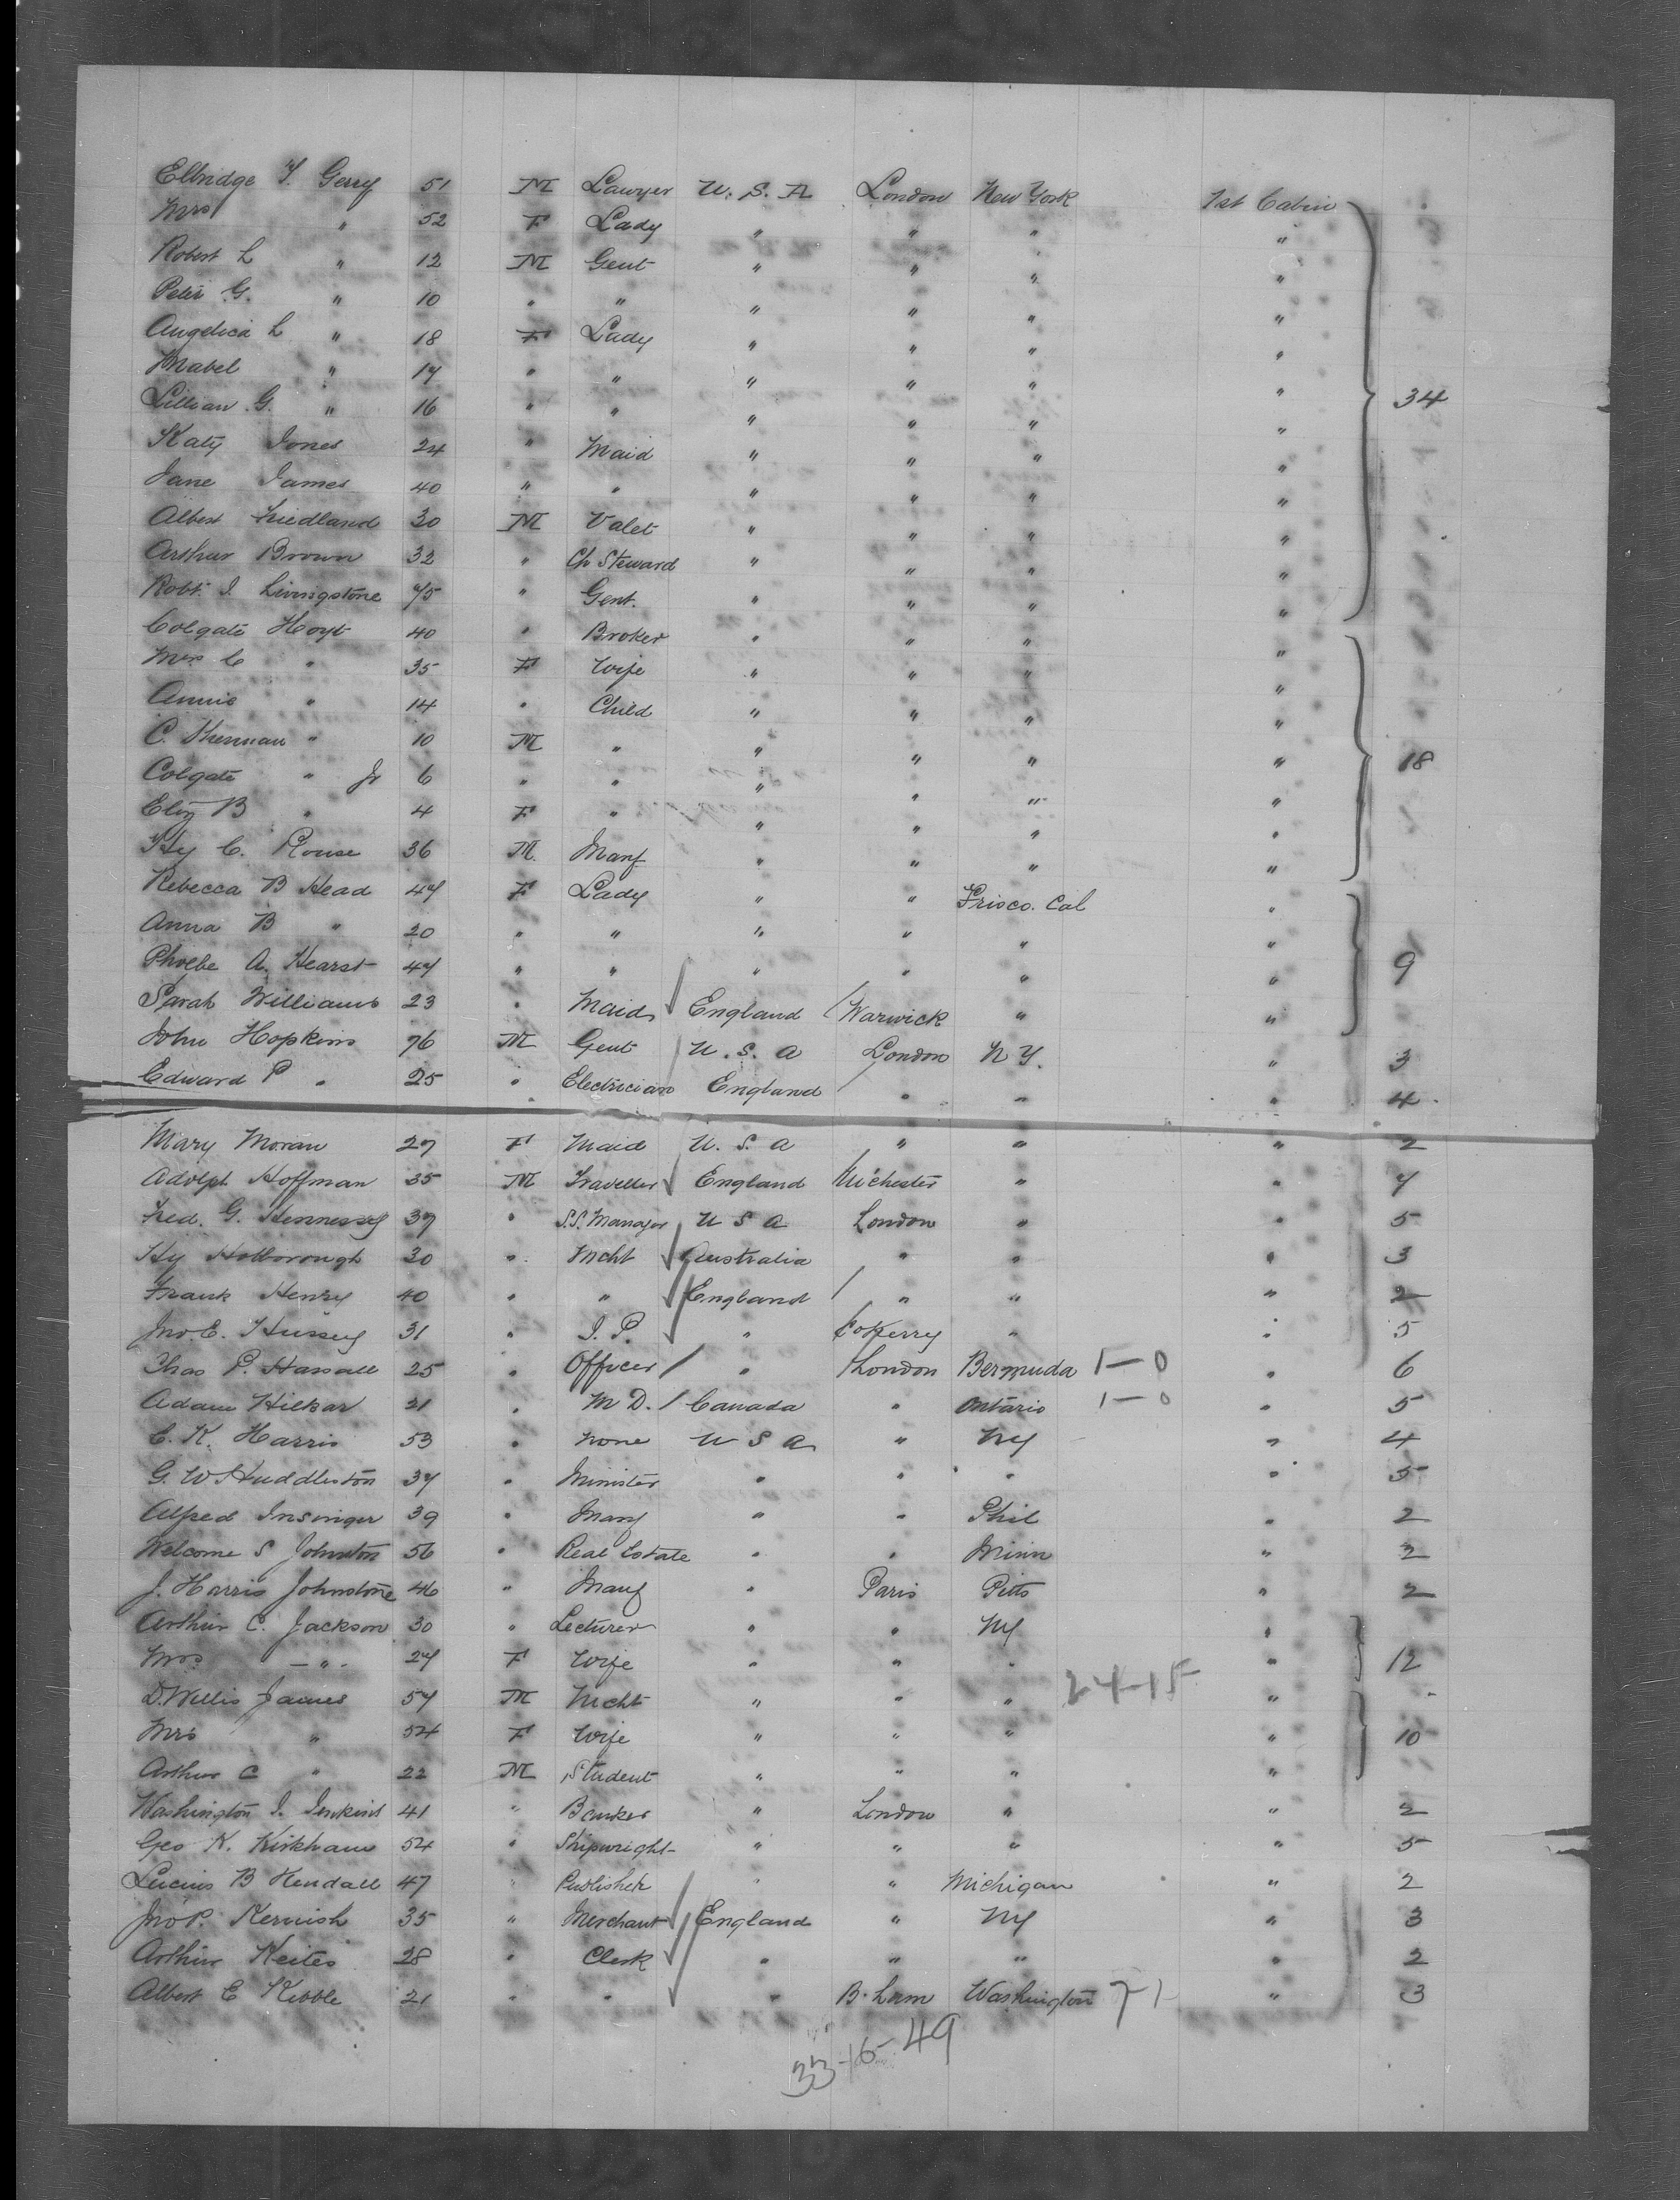 Elbridge T. Gerry 51 M Lawyer U.S.A London New York 1st Cabin
Mrs " 52 F Lady " " " "
Robert L " 12 M Gent " " " "
Peter G. " 10 " " " " " "
Angelica L " 18 F Lady " " " "
Mabel " 17 " " " " " "
Lillian G. " 16 " " " " " " 34
Katy Jones 24 " Maid " " " "
Jane James 40 " " " " " "
Albert Friedland 30 M Valet " " " "
Arthur Brown 32 " Ch Steward " " " "
Robt. I. Livingstone 75 " Gent. " " " "
Colgate Hoyt 40 " Broker " " " "
Mrs C " 35 F Wife " " " "
Annie " 14 " Child " " " "
C. Sherman " 10 M " " " " "
Colgate " Jr 6 " " " " " " 18
Eliz B " 4 F " " " " "
Hy C. Rouse 36 M. Manf " " " "
Rebecca B Head 47 F Lady " " Frisco. Cal "
Anna B " 20 " " " " " "
Phoebe A. Hearst 47 " " " " " " 9
Sarah Williams 23 " Maid England Warwick " "
John Hopkins 76 M Gent U.S.A London N Y. " 3
Edward P " 25 " Electrician England " " " 4
Mary Moran 27 F Maid U.S.A " " " 2
Adolph Hoffman 35 M Traveller England M'chester " " 7
Fred. G. Hennessy 37 " S.S. Manager U S A London " " 5
Hy Holborough 30 " Mcht Australia " " " 3
Frank Henry 40 " " England " " " 2
Jno. E. Hussey 31 " J.P. " Co Kerry " " 5
Chas P. Hassall 25 " Officer " London Bermuda 1-0 " 6
Adam 21 " M D. Canada " Ontario 1-0 " 5
C. K. Harris 53 " None U S A " NY " 4
G. W Huddleston 37 " Minister " " " " 5
Alfred Insinger 39 " Manf " " Phil " 2
Welcome S Johnston 56 " Real Estate " " Minn " 2
J. Harris Johnstone 46 " Manf " Paris Pitts " 2
Arthur C. Jackson 30 " Lecturer " " NY "
Mrs - " - 27 F Wife " " " " 12
D. Willis James 57 M Mcht " " " 24-15 "
Mrs " 54 F Wife " " " " 10
Arthur C " 22 M Student " " " "
Washington I. Jenkins 41 " Banker " London " " 2
Geo K. Kirkham 54 " Shipwright " " " " 5
Lucius B Kendall 47 " Publisher " " Michigan " 2
Jno P. Kernish 35 " Merchant England " NY " 3
Arthur Keites 28 " Clerk " " " " 2
Albert E Kibble 21 " " " B.ham Washington " 3
33-16-49